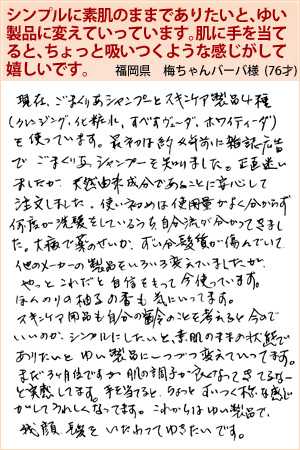 シンプルに素肌のままでありたいと、ゆい
製品に変えていっています。肌に手を当て
ると、ちょっと吸いつくような感じがして
嬉しいです。 福岡県 梅ちゃんバーバ様 (76才)
現在、ごまくりあシャンプーとスキンケア製品4種
(クレンジング、化粧水、すべすヴェーダ、ホワイティーダ)
を使っています。最初は約 年前に雑誌広告
で ごまくりあシャンプーを知りました。正直迷い
ましたが、天然由来成分であることに安心して
注文しました。使い初めは使用量がよく分からず
何度か洗髪をしているうち、自分流が分かってきまし
た。大病で薬のせいか、ずい分髪質が傷んでいて
他のメーカーの製品をいろいろ変えていましたが、
やっとこれだと自信をもって今使っています。
ほんのりの柚子の香も気にいってます。
スキンケア用品も自分の齢のことを考えると今ので
いいのか、シンプルにしたいと、素肌のままの状態で
ありたいと ゆい製品に一つづつ変えていってます。
まだ3ヶ月位ですが 肌の調子が良くなってきてるなー
と実感してます。手を当てると、ちょっとすいつく様な感じ
がしてうれしくなってます。これからはゆい製品で、
我顔、髪を いたわってゆきたいです。